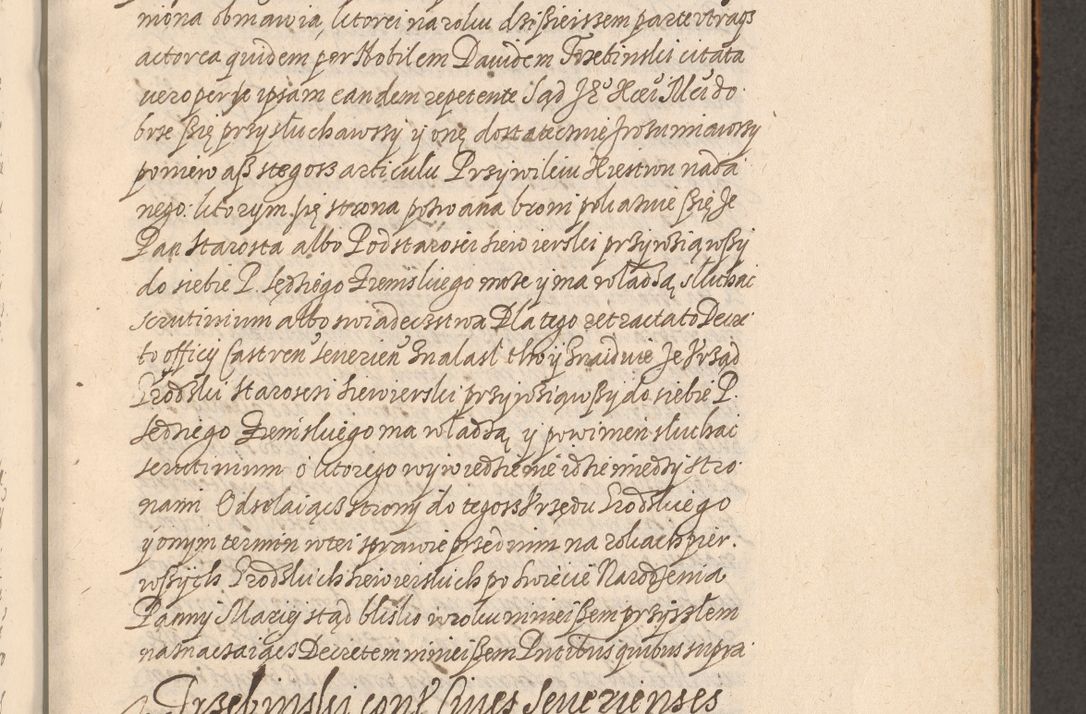 niona obmawia, ktorei na roku dzisieiszem parte utraqs
actorea quidem per Nobilem Dauidem Trzebinski citata
uero per se ipsam eandem repetente Sąd Je° Xcei Mci do
brze się przysłuchawszy y onę dostatecznie zrozumiawszy
poniewasz z tegosz articulu Przywileiu Xięstwu nada
nego: ktorym się strona pozwana broni pokazuie się Je
Pan Starosta albo Podstarosci siewierski przywziąwszy
do siebie P. Sędziego Ziemskiego może y ma władzą słuchac
scrutinium albo swiadecstwa Dla tego retractato Decre
to officij Castren Seuerien Znalasł tho y znaiduie Je Vrząd
Grodzki Starosczi Siewierski przywziąwszy do siebie P.
Sędziego Ziemskiego ma władzą y powinien słuchac
scrutinium o ktorego wywiedzienie idzie miedzy stro
nami Odsełaiącz strony do tegosz Vrzędu Grodzkiego
y onym termin w tei sprawie przed nim na rokach pier.
wszych Grodzkich siewierskich po swięcie Narodzenia
Panny Mariey stąd blisko w roku ninieiszem przyszłem
naznaczaiącz Decretem ninieiszem Pntibus quibus supra
Trzebinski cont Ciues Seuerienses